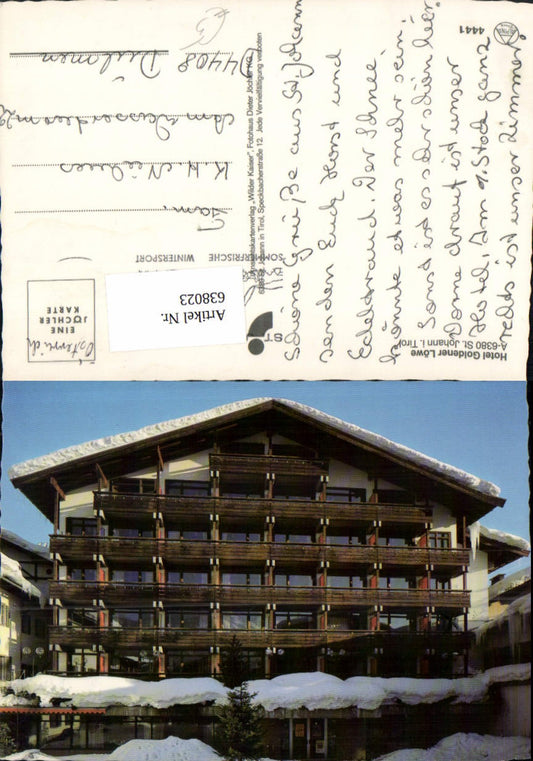 4441
Schöne Grüße aus St. Johann
senden Euch Horst und
Edeltraud. Der Schnee
könnte etwas mehr sein.
Sonst ist es sehr schön hier.
Vorne drauf ist unser
Hotel. Im 1. Stock ganz
rechts ist unser Zimmer.
Hotel Goldener Löwe
A-6380 St. Johann i. Tirol
Ansichtskartenverlag „Wilder Kaiser", Fotohaus Dieter Jöchler KG,
6380 St. Johann in Tirol, Speckbacherstraße 12. Jede Vervielfältigung verboten
SOMMERFRISCHE
WINTERSPORT
ST
EINE
JÖCHLER
KARTE
Österreich
Fam.
K. H.
D 4408 Dülmen
Artikel Nr.
638023